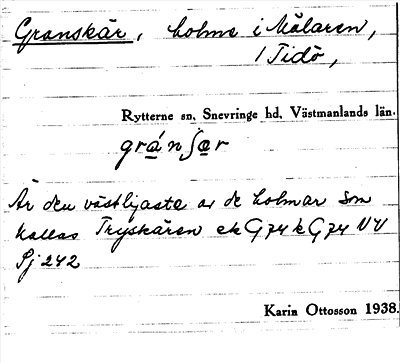 Granskär, holme i Mälaren,
/ Tidö,
Rytterne sn, Snevringe hd, Västmanlands län.
gránʃær
Är den västligaste av de holmar som
kallas Tryskären ek G 74 k G 74 VV
Sj 242
Karin Ottosson 1938.